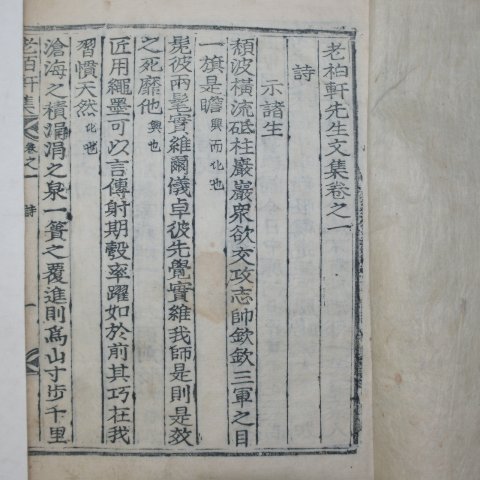 老柏軒先生文集卷之一
詩
示諸生
頹波橫流砥柱巖巖衆欲交攻志帥欽欽三軍之目
一旗是瞻興而比也
髧彼兩髦實維爾儀卓彼先覺實維我師是則是效
之死靡他興也
匠用繩墨可以言傳射期彀率躍如於前其巧在我
習慣天然比也
滄海之積涓涓之泉一簣之覆進則爲山寸步千里
老柏軒集 卷之一 詩 一